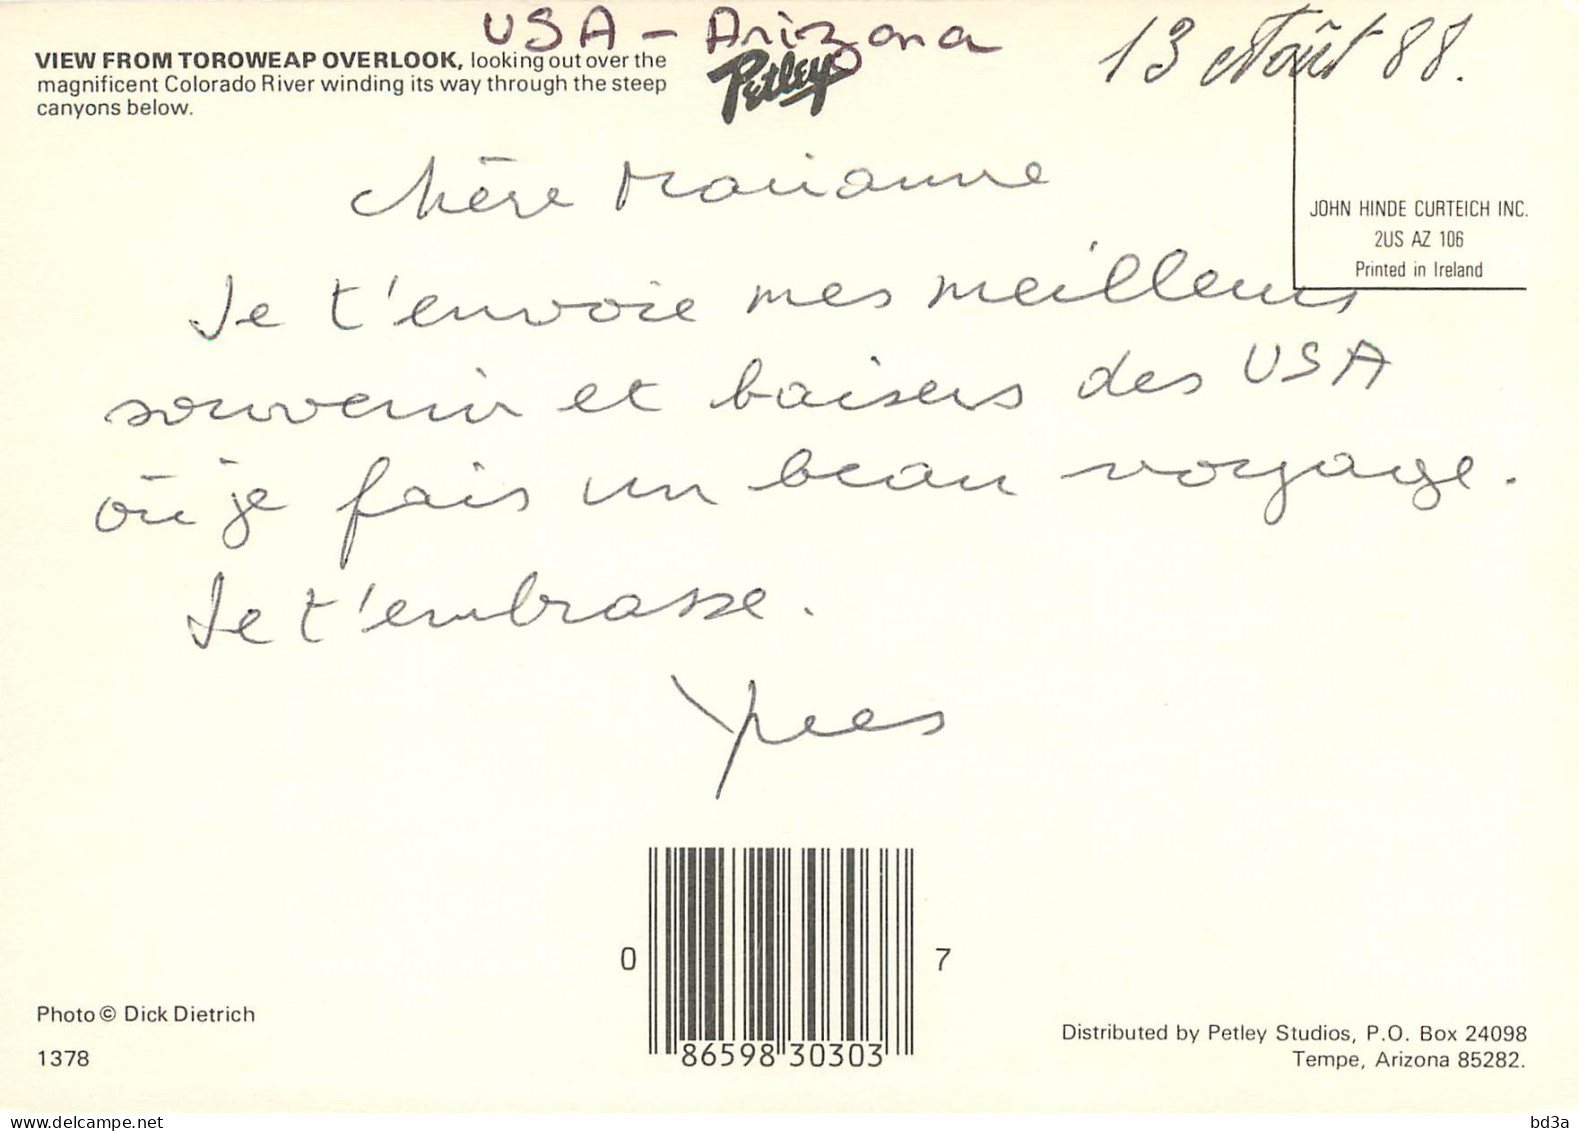 USA - Arizona
13 Août 88.
VIEW FROM TOROWEAP OVERLOOK, looking out over the
magnificent Colorado River winding its way through the steep
canyons below.
Petley
JOHN HINDE CURTEICH INC.
2US AZ 106
Printed in Ireland
chère Marianne
Je t'envoie mes meilleurs
souvenir et baisers des USA
où je fais un beau voyage.
Je t'embrasse.
Yves
0 86598 30303 7
Photo © Dick Dietrich
1378
Distributed by Petley Studios, P.O. Box 24098
Tempe, Arizona 85282.
delcampe.net
bd3a